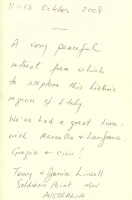 11-15 October 2008
A very peaceful
retreat from which
to explore this historic
region of Italy.
We've had a great time,
with Marcella & Lanfranco.
Grazie & ciao!
Terry & Janice Linsell
Soldiers Point NSW
AUSTRALIA